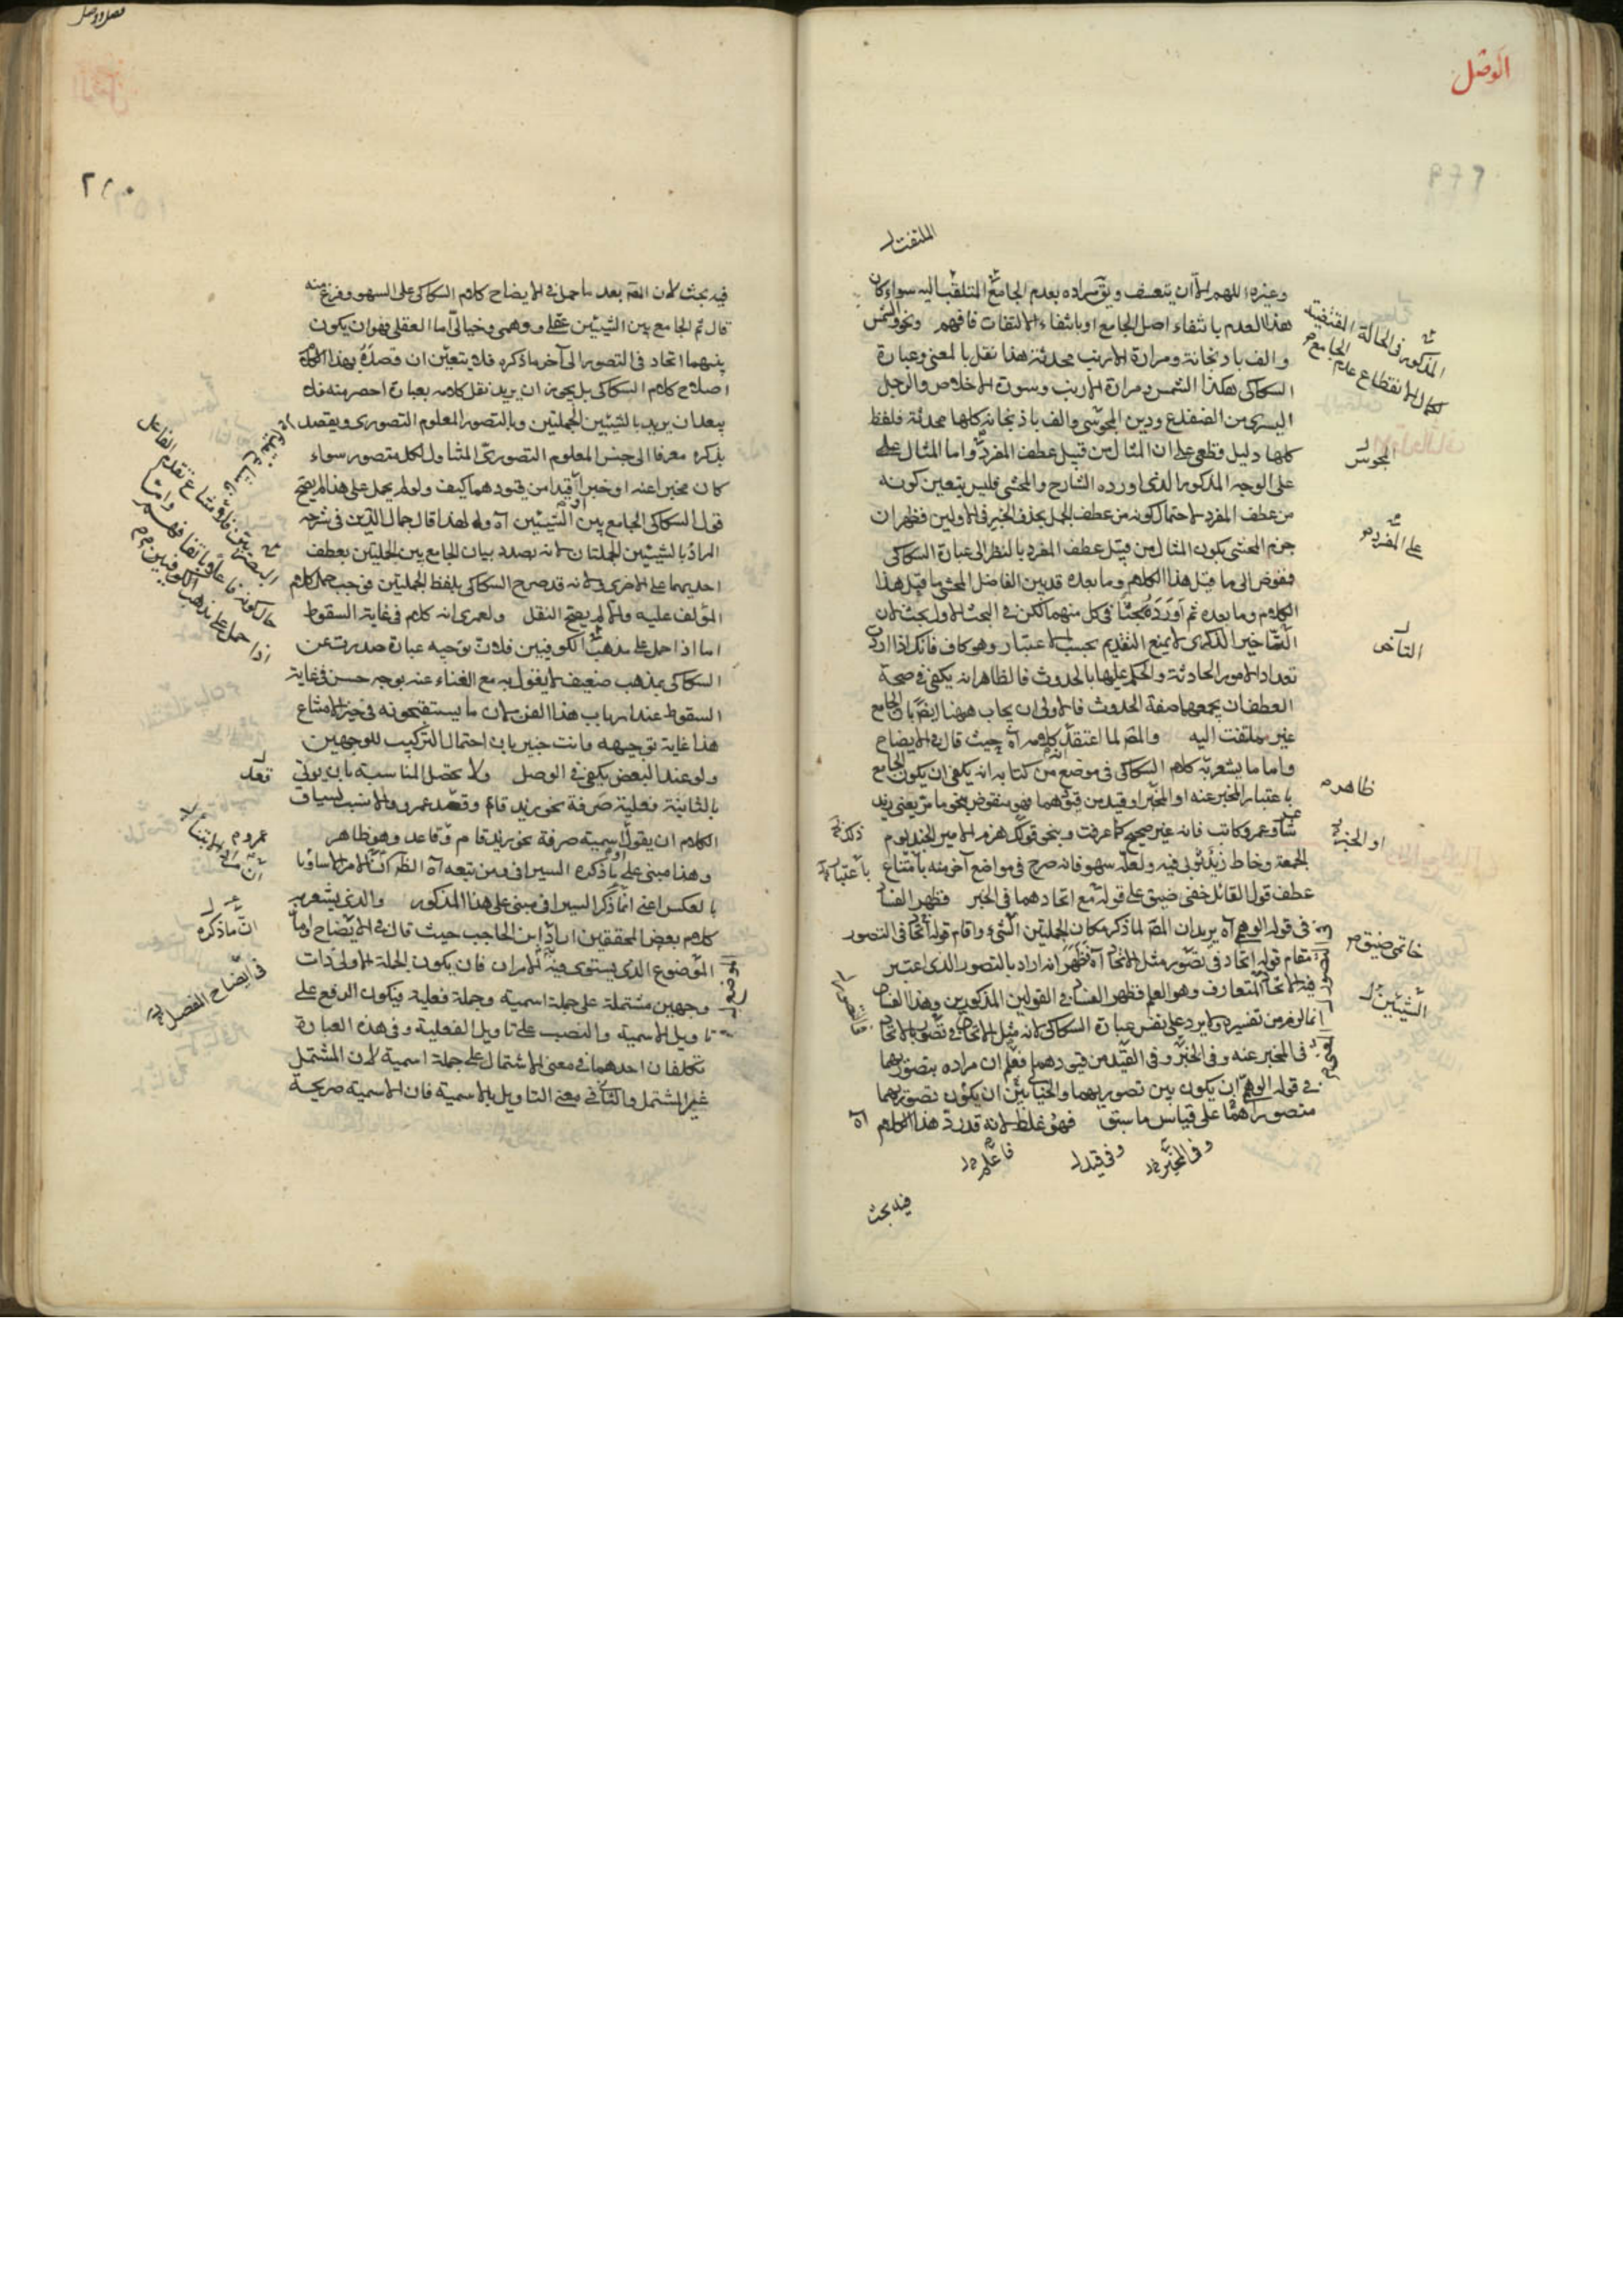 الوصل
الملتفت
وغيره اللهم الا ان يتعسف ويق مراده بعدم الجامع المتلفت اليه سواء كان
هذا العدم بانتفاء اصل الجامع او بانتفاء الالتفات فافهم ونحو الشمس
والف باذنجانة ومرارة الارنب محدثة هذا نقل بالمعنى وعبارة
السكاكى هكذا الشمس ومرارة الارنب وسورة الاخلاص والرجل
اليسرى من الضفدع ودين المجوسى والف باذنجانة كلها محدثة فلفظ
كلها دليل قطعى على ان المثال من قبيل عطف المفرد واما المثال على
على الوجه المذكور الذى اورده الشارح والمحشى فليس يتعين كونه
من عطف المفرد لاحتمال كونه من عطف الجمل بحذف الخبر فى الاولين فظهر ان
جزم المحشى بكون المثال من قبيل عطف المفرد بالنظر الى عبارة السكاكى
مفوض الى ما قبل هذا الكلام وما بعده قد بين الفاضل المحشى ما قبل هذا
الكلام وما بعده ثم اورد بحثا فى كل منهما لكن فى البحث الاول بحث لان
التأخير الذكرى لا يمنع التقديم بحسب الاعتبار وهو كاف فانك اذا اردت
تعداد الامور الحادثة والحكم عليها بالحدوث فالظاهر انه يكفى فى صحة
العطف ان يجمعها صفة الحدوث فالاولى ان يجاب ههنا ايضا بان الجامع
غير ملتفت اليه والمص لما اعتقد كلامه آه حيث قال فى الايضاح
واما ما يشعر به كلام السكاكى فى موضع من كتابه انه يكفى ان يكون الجامع
باعتبار المخبر عنه او المخبر او قيد من قيودهما فهو منقوض بنحو ما مر يعنى زيد
شاعر وعمرو كاتب فانه غير صحيح كما عرفت وبنحو قولك هزم الامير الجند يوم
الجمعة وخاط زيد ثوبى فيه ولعله سهو فانه صرح فى مواضع آخر منه بامتناع
عطف قول القائل خفى ضيق على قوله مع اتحادهما فى الخبر فظهر الفساد
فى قوله الوهمى آه يريد ان المص لما ذكر مكان الجملتين الشيئ واقام قوله اتحاد فى التصور
مقام قوله اتحاد فى تصور مثل الاتحاد آه فظهر انه اراد بالتصور الذى اعتبر
فيه الاتحاد المتعارف وهو العلم فظهر الفساد فى القولين المذكورين وهذا الفساد
انما لزم من تفسيره ولا يرد على نفس عبارة السكاكى لانه مثل الاتحاد فى تصور بالاتحاد
فى المخبر عنه وفى الخبر وفى القيد من قيودهما فعلم ان مراده بتصورهما
فى قوله الوهمى ان يكون بين تصوريهما والخيالى بين ان يكون تصوريهما
متصوراهما على قياس ما سبق فهو غلط لانه قد رد هذا الكلام آه
وفى المخبر
وفى قيد
فاعلم
فيه بحث
المذكور فى الحالة المقتضية
لكمال الانقطاع عدم الجامع
المجوس
على المفرد
التأخر
ظاهر
او الخبر
خاتمى ضيق
الشيئين
ذلك
باعتبار
فصل ووصل
٢٥٠
فيه بحث لان المص بعد ما حمل فى الايضاح كلام السكاكى على السهو وفرغ منه
قال ثم الجامع بين الشيئين عقلى ووهمى وخيالى اما العقلى فهو ان يكون
بينهما اتحاد فى التصور الى آخر ما ذكره فلا يتعين ان قصده بهذا الكلام
اصلاح كلام السكاكى بل يجوز ان يريد نقل كلامه بعبارة اخصر منه فلا
يبعد ان يريد بالشيئين الجملتين وبالتصور المعلوم التصورى ويقصد
بذكره معرفا الى جنس المعلوم التصورى المتناول لكل متصور سواء
كان مخبرا عنه او خبرا او قيدا من قيودهما كيف ولو لم يحمل على هذا لم يصح
قول السكاكى الجامع بين الشيئين آه ولهذا قال جمال الدين فى شرحه
المراد بالشيئين الجملتان لانه بصدد بيان الجامع بين الجملتين بعطف
احديهما على الاخرى ولانه قد صرح السكاكى بلفظ الجملتين فوجب حمل كلام
المؤلف عليه والا لم يصح النقل ولعمرى انه كلام فى غاية السقوط
اما اذا حمل على مذهب الكوفيين فلان توجيه عبارة صدرت عن
السكاكى بمذهب ضعيف لا يقول به مع الغناء عنه بوجه حسن فى غاية
السقوط عند ارباب هذا الفن لان ما يستقبحونه فى حيز الامتناع
هذا غاية توجيهه وانت خبير بان احتمال التركيب للوجهين
ولو عند البعض يكفى فى الوصل ولا يحصل المناسبة بان يؤتى
بالثانية فعلية صرفة نحو زيد قام وقعد عمرو والانسب لسياق
الكلام ان يقول اسمية صرفة نحو زيد قام وقاعد وهو ظاهر
وهذا مبنى على ما ذكره السيرافى ومن تبعه آه الظ ان الامر بالساوبا
بالعكس اعنى انما ذكر السيرافى مبنى على هذا المذكور والذى يشعر به
كلام بعض المحققين اراد ابن الحاجب حيث قال فى الايضاح واما
الموضوع الذى يستوى فيه الامران فان يكون الجملة الاولى ذات
وجهين مشتملة على جملة اسمية وجملة فعلية فيكون الرفع على
تاويل الاسمية والنصب على تاويل الفعلية وفى هذه العبارة
تكلفان احدهما فى معنى الاشتمال على جملة اسمية لان المشتمل
غير المشتمل والثانى فى معنى التاويل بالاسمية فان الاسمية صريحة
حال كونه فاعلا
اذا حمل على مذهب الكوفيين
قعد
عمرو
ان ما ذكره
فى ايضاح المفصل